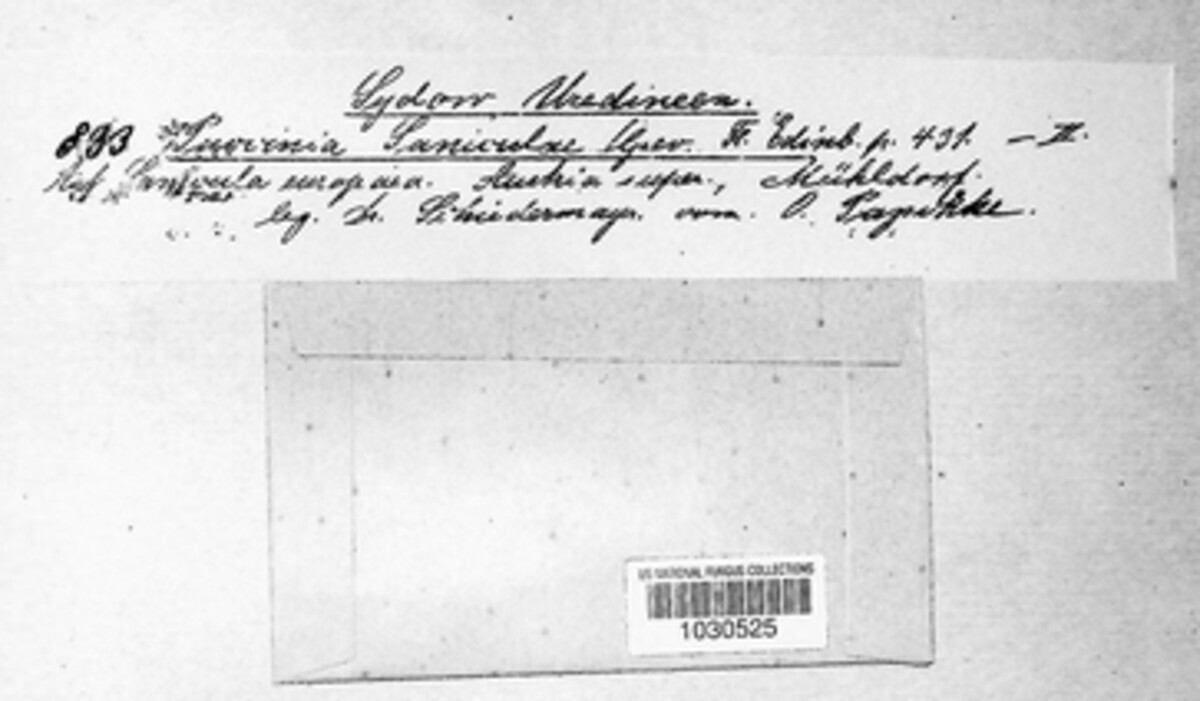 Sydow Uredineen.
893 Puccinia Saniculae Grev. Fl. Edinb. p. 431. — III.
Auf Sanicula europaea. Austria super., Mühldorf.
leg. Dr. Schiedermayr. com. P.
US NATIONAL FUNGUS COLLECTIONS
1030525